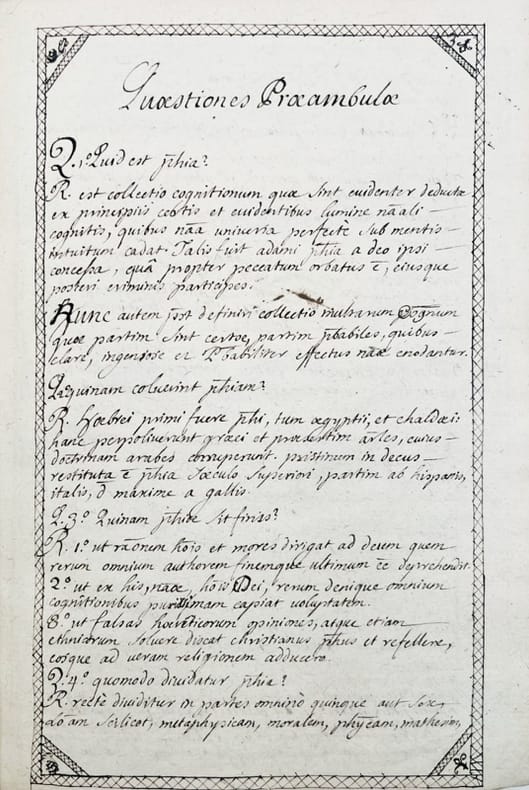 Quæstiones Præambulæ
Q. 1.º Quid est p̄hia?
R. est collectio cognitionum quæ sint evidenter deductæ
ex principiis certis et evidentibus lumine nāali –
cognitis, quibus nāa universa perfecte sub mentis –
intuitum cadat. Talis fuit adami p̄hia a deo ipsi –
concessa, quâ propter peccatum orbatus ē, eiusque
posteri criminis participes.
Nunc autem definiri collectio multarum Cognum
quæ partim sint certæ, partim p̄babiles, quibus –
clare, ingeniose et P̄babiliter effectus nāæ enodantur.
Q. 2. quinam coluerint p̄hiam?
R. Hœbrei primi fuere p̄hi, tum ægyptii, et chaldæi:
hanc perpoliverunt græci et præsertim ār̄les, cuius –
doctrinam arabes corruperunt. pristinum in decus –
restituta ē p̄hia sæculo superiori, partim ab hispanis,
italis, maxime a gallis.
Q. 3.º Quinam p̄hiæ sit finis?
R. 1.º ut rāonem hōis et mores dirigat ad deum quem
rerum omnium authorem finemque ultimum ēe deprehendit.
2.º ut ex his, nāæ, hōis Dei, rerum denique omnium
cognitionibus purissimam capiat voluptatem.
3.º ut falsas hæreticorum opiniones, atque etiam
ethnicorum solvere discat christianus p̄hus et refellere,
eosque ad veram religionem adducere.
Q. 4.º quomodo dividatur p̄hia?
R. recte dividitur in partes omnino quinque aut sex,
scilicet, metaphysicam, moralem, phȳcam, mathesim,